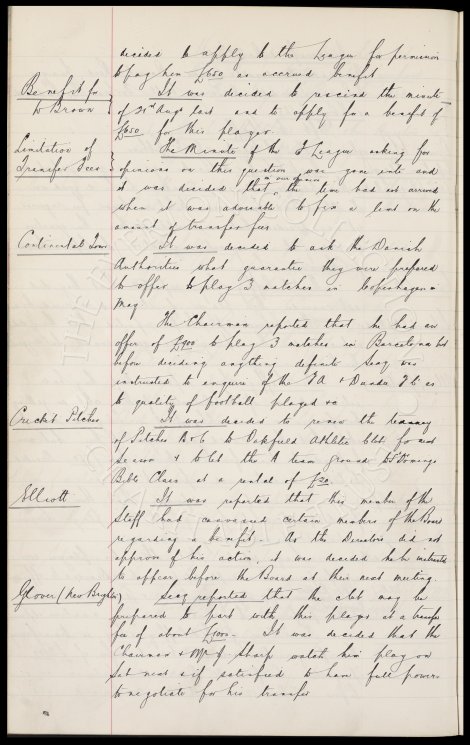 decided to apply to the League for permission
to pay him £650 as accrued benefit
Benefit for
W Brown
It was decided to rescind the minute
of 31st Augt last and to apply for a benefit of
£650 for this player.
Limitation of
Transfer Fees
The Minute of the F League asking for
opinions on this question was gone into and
it was decided that in our opinion the time had not arrived
when it was advisable to fix a limit on the
amount of transfer fees
Continental Tour
It was decided to ask the Danish
Authorities what guarantee they were prepared
to offer to play 3 matches in Copenhagen in
May.
The Chairman reported that he had an
offer of £900 to play 3 matches in Barcelona but
before deciding anything definite Secy was
instructed to enquire of the FA & Dundee F C as
to quality of football played &c
Cricket Pitches
It was decided to renew the tenancy
of Pitches B & C to Oakfield Athletic Club for next
season & to let the A team ground to St Domingo
Bible Class at a rental of £20.
Elliott
It was reported that this member of the
Staff had canvassed certain members of the Board
regarding a benefit. As the Directors did not
approve of his action, it was decided he be instructed
to appear before the Board at their next meeting.
Glover (New Brighton)
Secy reported that the club may be
prepared to part with this player at a transfer
fee of about £1000. It was decided that the
Chairman & Mr J. Sharp watch him play on
Sat next & if satisfied to have full power
to negotiate for his transfer